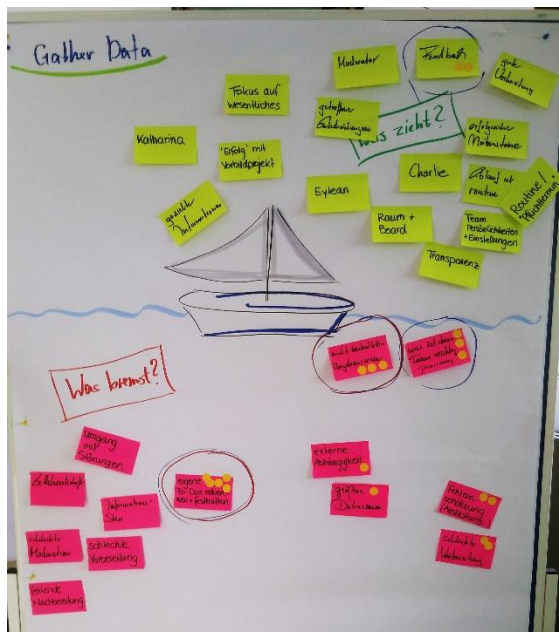 Gather Data
Moderator
Feedback
gute
Vorbereitung
Fokus auf
wesentliches
getroffene
Entscheidungen
Was zieht?
erfolgreiche
Meilensteine
Katharina
'Erfolg' mit
Vorbildprojekt
Charlie
Ablauf ist
routine
Routine/
Pflichttermin
Eylean
gezielte
Informationen
Raum +
Board
Team
Persönlichkeiten
+ Einstellungen
Transparenz
Was bremst?
was ist dem
Team wichtig
Umgang
mit
Störungen
externe
Abhängigkeit
eigene
To Dos
+ festhalten
Informations-
schlechte
Moderation
schlechte
Vorbereitung
schlechte
Vorbereitung
größere
Diskussionen
fehlende
Nachbereitung